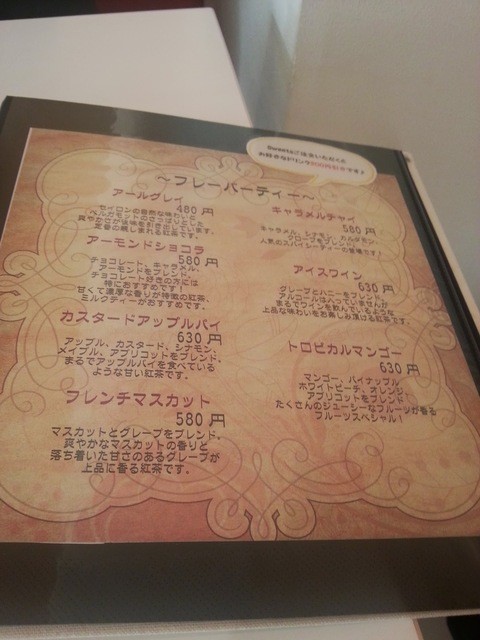 Sweetsご注文いただくと
お好きなドリンク200円引きです♪
～フレーバーティー～
アールグレイ
480 円
セイロンの自然な味わいに、
ベルガモットのさっぱりとした
爽やかさが後味を引き出しています。
定番の親しまれる紅茶です。
アーモンドショコラ
580 円
チョコレート、キャラメル、
アーモンドをブレンド。
チョコレート好きの方には
特におすすめです！
甘くて濃厚な香りが特徴の紅茶、
ミルクティーがおすすめです。
カスタードアップルパイ
630 円
アップル、カスタード、シナモン、
メイプル、アプリコットをブレンド。
まるでアップルパイを食べている
ような甘い紅茶です。
フレンチマスカット
580 円
マスカットとグレープをブレンド、
爽やかなマスカットの香りと
落ち着いた甘さのあるグレープが
上品に香る紅茶です。
キャラメルチャイ
580 円
キャラメル、シナモン、カルダモン、
クローブをブレンド。
人気のスパイシーティーの登場です！
アイスワイン
630 円
グレープとハニーをブレンド。
アルコールは入っていませんが
まるでワインを飲んでいるような
上品な味わいをお楽しみ頂ける紅茶です。
トロピカルマンゴー
630 円
マンゴー、パイナップル
ホワイトピーチ、オレンジ、
アプリコットをブレンド
たくさんのジューシーなフルーツが香る
フルーツスペシャル！